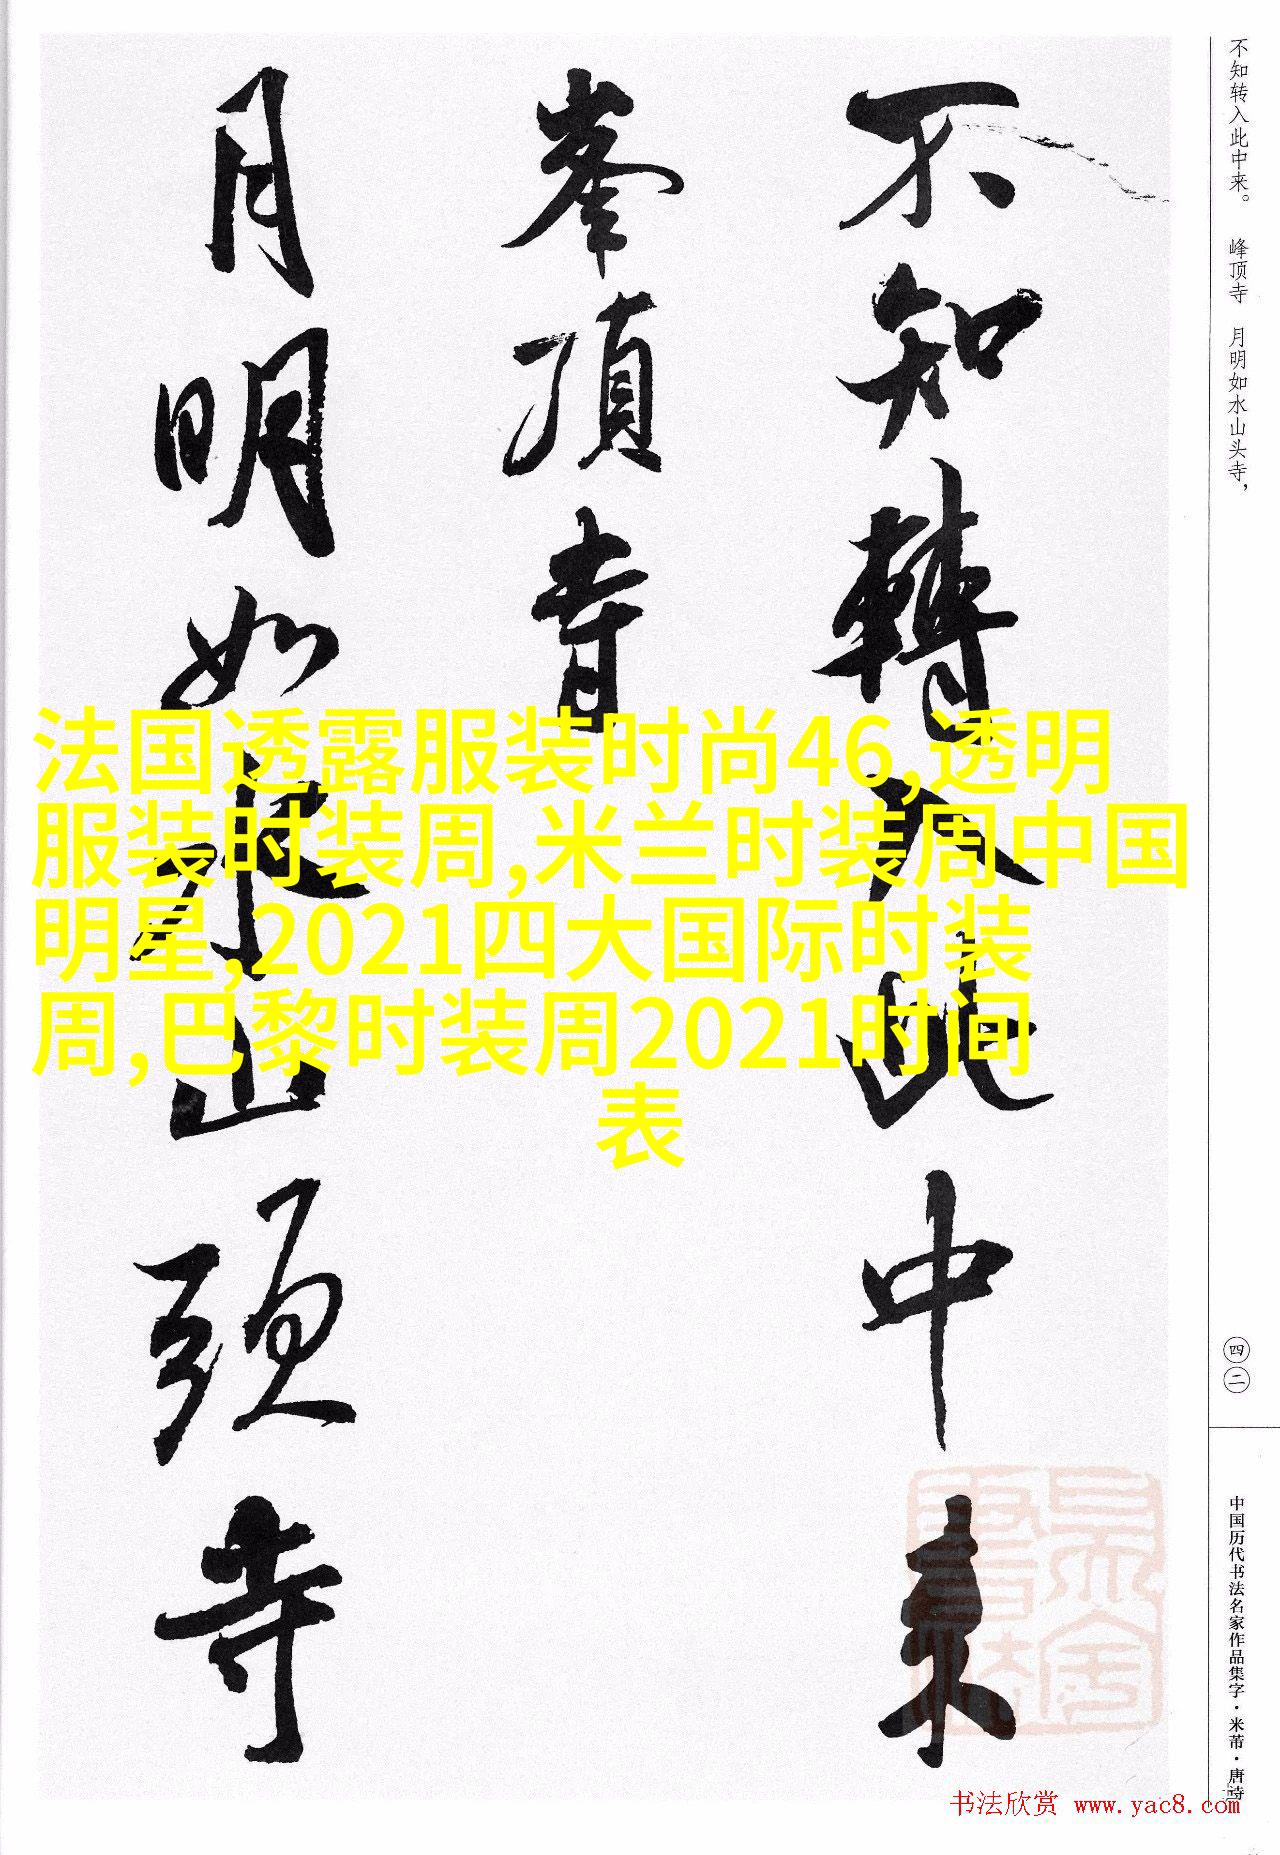 不知转入此中来。 峰顶寺 月明如水山头寺，
不知轉入此中来
峯頂寺
月明如水山頭寺
法国透露服装时尚46,透明
服装时装周,米兰时装周中国
明星,2021四大国际时装
周,巴黎时装周2021时间
表
四二
中国历代书法名家作品集字·米芾·唐诗
书法欣赏 www.yac8.com